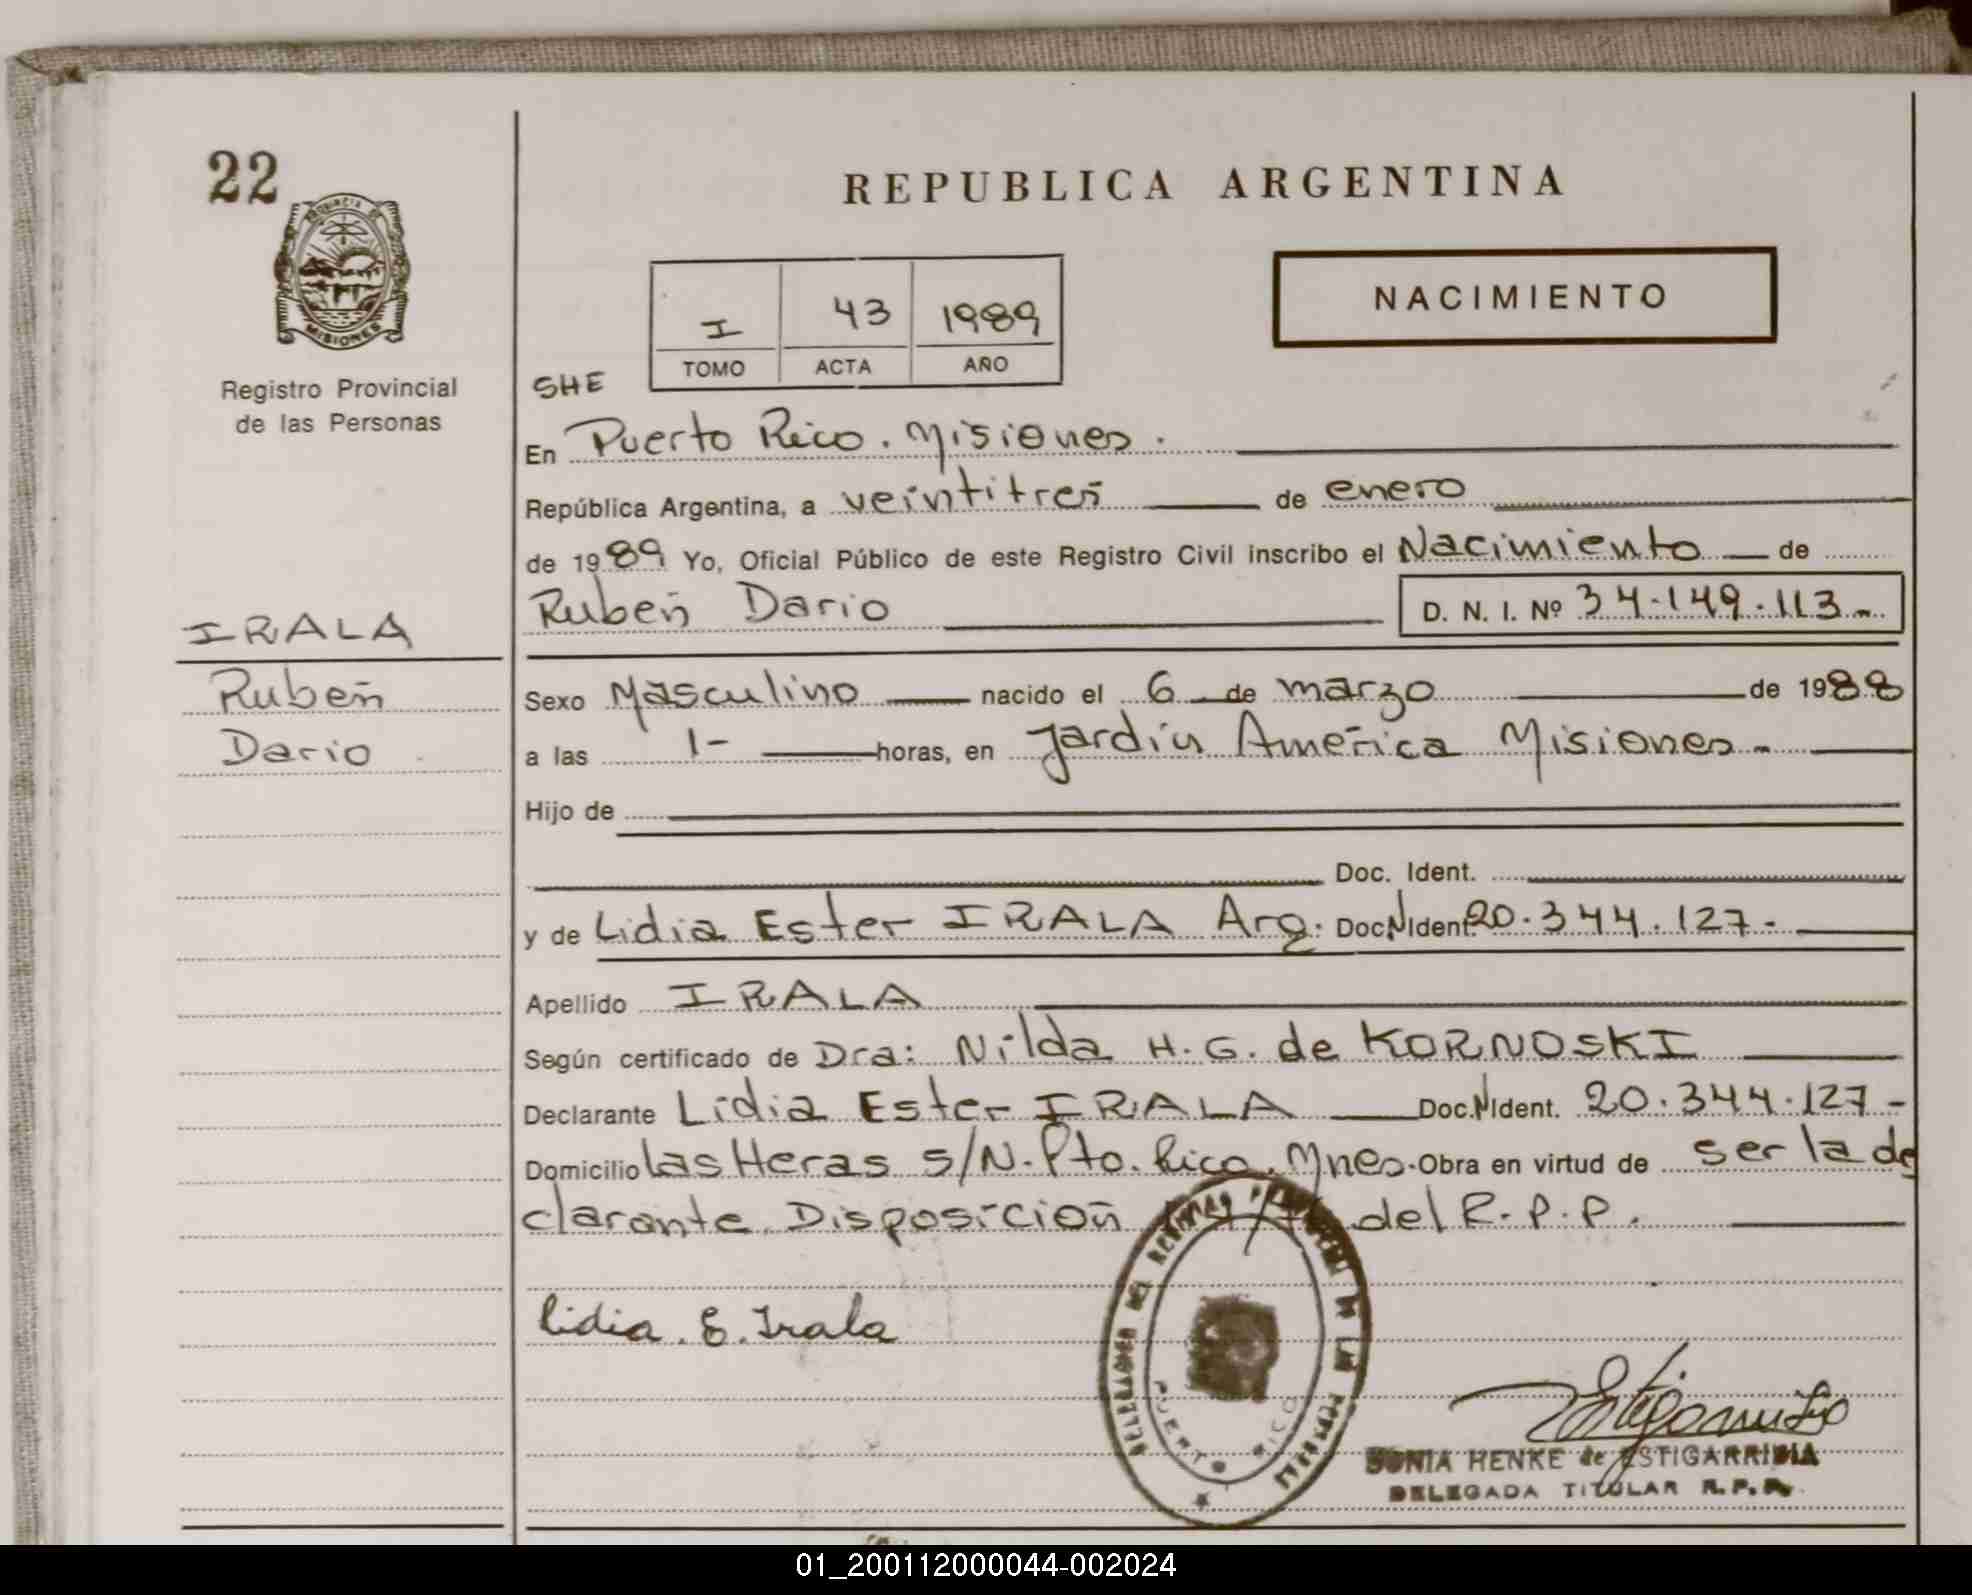 22
REPUBLICA ARGENTINA
PROVINCIA DE
MISIONES
Registro Provincial
de las Personas
I 43 1989
TOMO ACTA AÑO
NACIMIENTO
SHE
En Puerto Rico. Misiones.
República Argentina, a veintitres de enero
de 1989 Yo, Oficial Público de este Registro Civil inscribo el Nacimiento de
Rubén Dario D. N. I. Nº 34.149.113.-
IRALA
Rubén
Dario
Sexo Masculino nacido el 6 de marzo de 1988
a las 1- horas, en Jardín América Misiones.-
Hijo de
Doc. Ident.
y de Lidia Ester IRALA Arg. Doc.N.Ident. 20.344.127.-
Apellido IRALA
Según certificado de Dra: Nilda H. G. de KORNOSKI
Declarante Lidia Ester IRALA Doc.N.Ident. 20.344.127-
Domicilio las Heras S/N. Pto. Rico. Mnes. Obra en virtud de ser la de
clarante. Disposición del R.P.P.
Lidia. E. Irala
DELEGACION DEL REGISTRO PROVINCIAL DE LAS PERSONAS
PUERTO RICO
SONIA HENKE de ESTIGARRIBIA
DELEGADA TITULAR R.P.P.
01_200112000044-002024